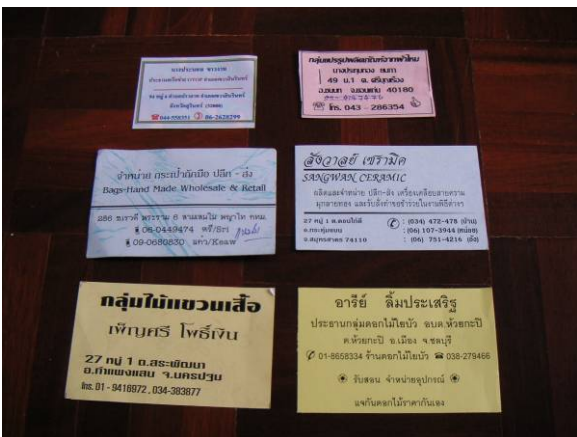 044-558351 06-2628299
กลุ่มแปรรูปผลิตภัณฑ์จากผ้าไหม
49 ม.1 ต. ศรีบุญเรือง
อ.ชนบท จ.ขอนแก่น 40180
โทร. 043 - 286354
จำหน่าย กระเป๋าถักมือ ปลีก - ส่ง
Bags-Hand Made Wholesale & Retail
286 ธเราดี พระราม 6 สามเสนใน พญาไท กทม.
06-0449474 ศรี/Sri
09-0680830 แก้ว/Keaw
สังวาลย์ เซรามิค
SANGWAN CERAMIC
ผลิตและจำหน่าย ปลีก-ส่ง เครื่องเคลือบลายคราม
มุกลายทอง และรับสั่งทำของชำร่วยในงานพิธีต่างๆ
27 หมู่ 1 ต.ดอนไก่ดี : (034) 472-478 (บ้าน)
อ.กระทุ่มแบน : (06) 107-3944 (หน่อย)
จ.สมุทรสาคร 74110 : (06) 751-4216 (อั๋ง)
กลุ่มไม้แขวนเสื้อ
เพ็ญศรี โพธิ์เงิน
27 หมู่ 1 ต.สระพัฒนา
อ.กำแพงแสน จ.นครปฐม
โทร. 01 - 9416972 , 034-383877
อารีย์ ลิ้มประเสริฐ
ประธานกลุ่มดอกไม้ใยบัว อบต.ห้วยกะปิ
ต.ห้วยกะปิ อ.เมือง จ.ชลบุรี
01-8658334 ร้านดอกไม้ใยบัว 038-279466
รับสอน จำหน่ายอุปกรณ์
แจกันดอกไม้ราคากันเอง